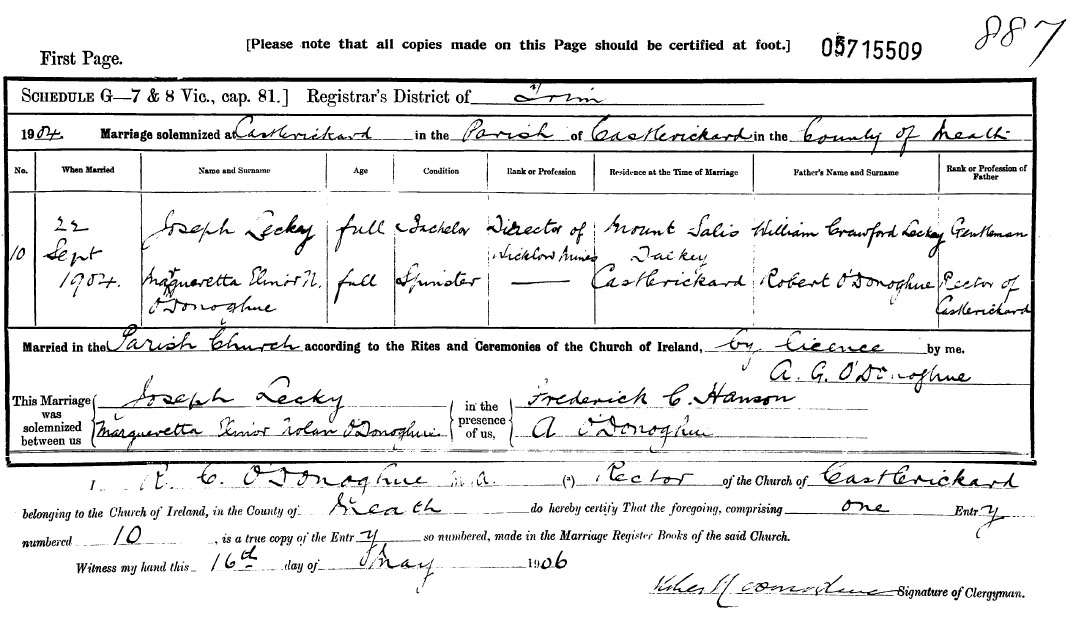 887
[Please note that all copies made on this Page should be certified at foot.] 05715509
First Page.
SCHEDULE G—7 & 8 Vic., cap. 81.] Registrar's District of Trim
1904. Marriage solemnized at Castlerickard in the Parish of Castlerickard in the County of Meath
No. When Married Name and Surname Age Condition Rank or Profession Residence at the Time of Marriage Father's Name and Surname Rank or Profession of Father
10 22 Sept 1904. Joseph Lecky full Bachelor Director of Wicklow Mines Mount Salis William Crawford Lecky Gentleman
Margueretta Elinor N. O'Donoghue full Spinster — Castlerickard Robert O'Donoghue Rector of Castlerickard
Married in the Parish Church according to the Rites and Ceremonies of the Church of Ireland, by licence by me.
A. G. O'Donoghue
This Marriage was solemnized between us { Joseph Lecky } in the presence of us, { Frederick C. Hanson
Margueretta Elinor Nolan O'Donoghue A O'Donoghue
I R. C. O'Donoghue M.A. (a) Rector of the Church of Castlerickard
belonging to the Church of Ireland, in the County of Meath do hereby certify That the foregoing, comprising one Entry
numbered 10, is a true copy of the Entry so numbered, made in the Marriage Register Books of the said Church.
Witness my hand this 16th day of May 1906
Signature of Clergyman.